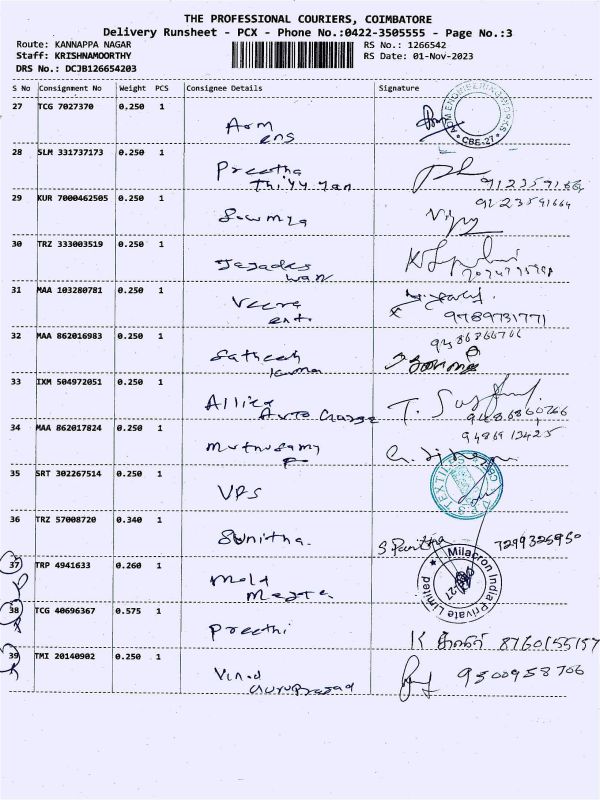 THE PROFESSIONAL COURIERS, COIMBATORE
Delivery Runsheet - PCX - Phone No.:0422-3505555 - Page No.:3
Route: KANNAPPA NAGAR RS No.: 1266542
Staff: KRISHNAMOORTHY RS Date: 01-Nov-2023
DRS No.: DCJB126654203
S No Consignment No Weight PCS Consignee Details Signature
27 TCG 7027370 0.250 1
Arm
ens
CBE-27
28 SLM 331737173 0.250 1
Preetha
29 KUR 7000462505 0.250 1
Sowmya
Vijay
30 TRZ 333003519 0.250 1
Jagades
wan
31 MAA 103280781 0.250 1
Veera
ent.
9789731771
32 MAA 862016983 0.250 1
Satheesh
kumar
33 IXM 504972051 0.250 1
Allied
Auto
34 MAA 862017824 0.250 1
9486913425
Muthusamy
35 SRT 302267514 0.250 1
VPS
36 TRZ 57008720 0.340 1
Sunitha. 7299325950
37 TRP 4941633 0.260 1
Milacron India Private Limited
Mold
38 TCG 40696367 0.575 1
Preethi
K 8760155157
39 TMI 20140902 0.250 1
Vinod 9500958706
Guruprasad